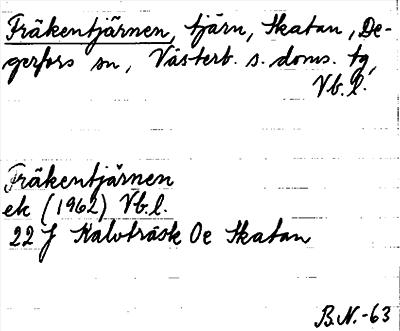 Fräkentjärnen, tjärn, Skatan, De-
gerfors sn, Västerb. s. doms. tg,
Vb. l.
Fräkentjärnen
ek (1962) Vb. l.
22 J Kalvträsk 0e Skatan
B.N.-63